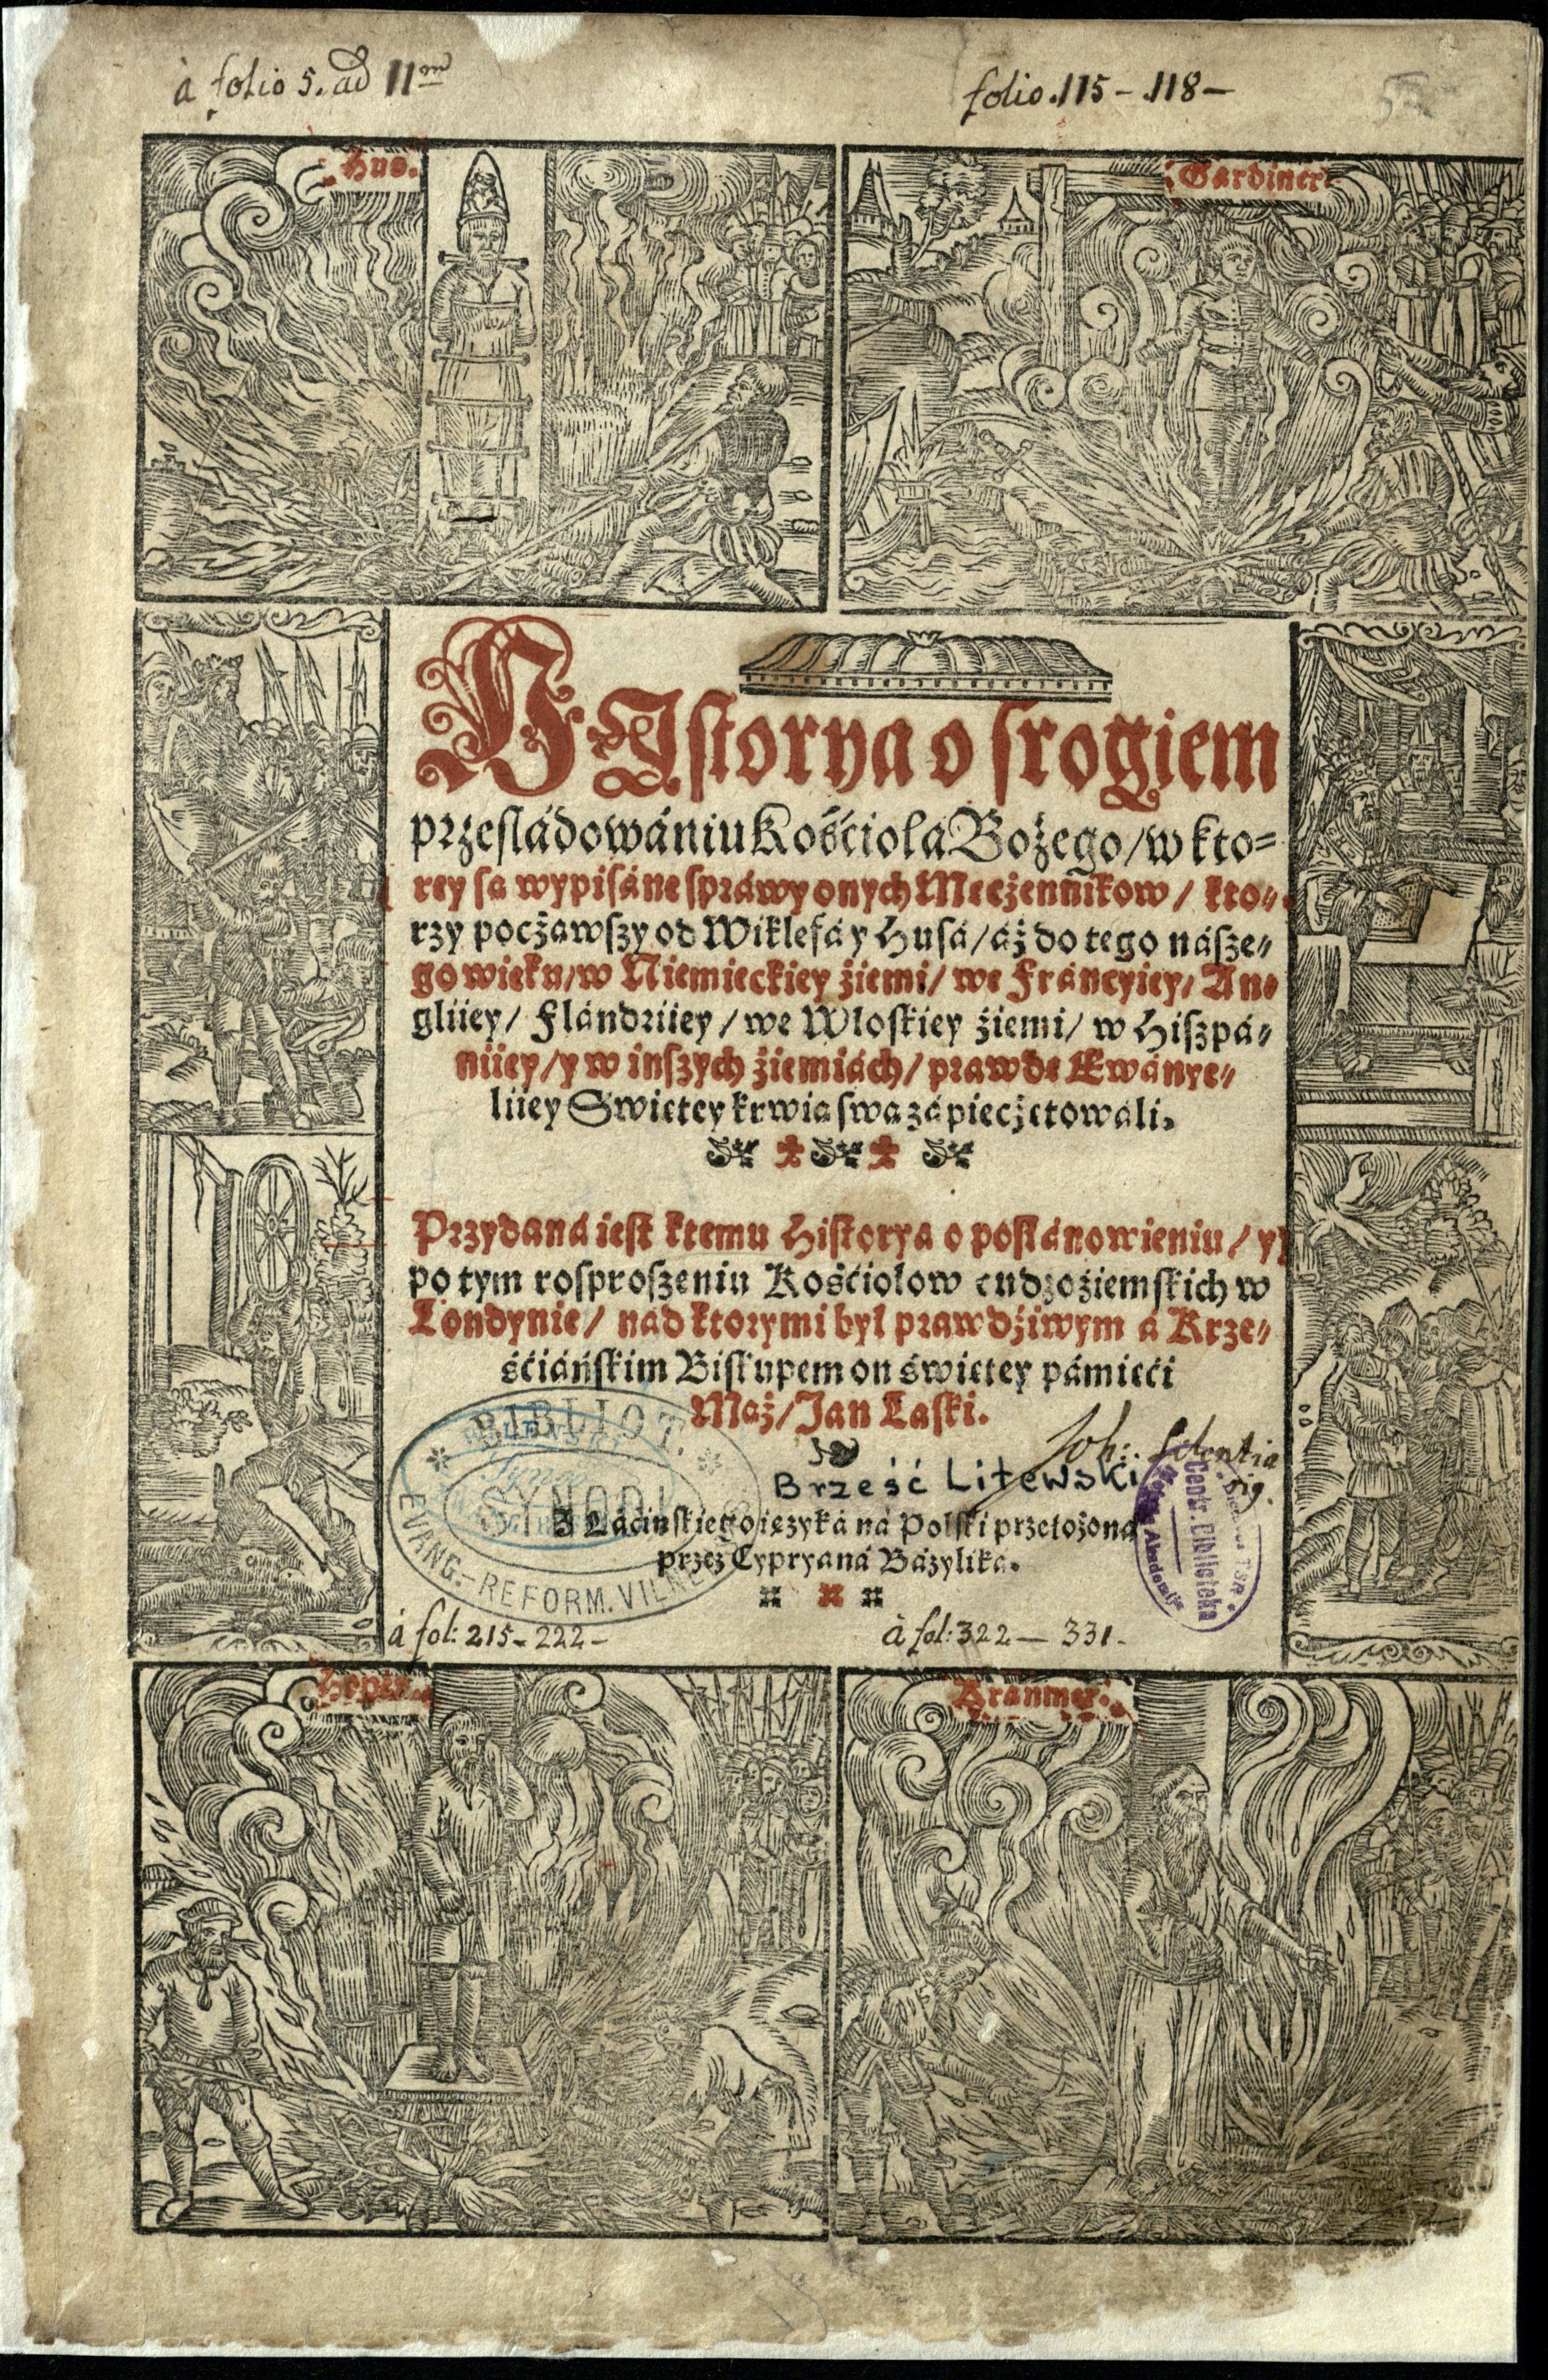 à folio 5. ad 11m
folio. 115 - 118 -
Hus.
Gardiner
HIstorya o srogiem
przesládowániu Kościoła Bożego / w kto=
rey są wypisáne spráwy onych Męczennikow / kto=
rzy począwszy od Wiklefá y Husá / áż do tego násze=
go wieku / w Niemieckiey źiemi / we Fráncyiey / An=
gliiey / Flándriiey / we Włoskiey źiemi / w Hiszpá=
niiey / y w inszych źiemiách / prawdę Ewánye=
liiey Swiętey krwią swą zápieczętowáli.
Przydaná iest ktemu Historya o postánowieniu / y
po tym rosproszeniu Kościołow cudzoźiemskich w
Londynie / nád ktorymi był prawdźiwym á Krze=
śćiáńskim Biskupem on świętey pámięći
Mąż / Jan Łaski.
Brześć Litewski
Z Łáćińskiego ięzyká ná Polski przełożona
przez Cypryaná Bázyliká.
BIBLIOT.
SYNODI
EVANG.-REFORM. VILNE
Centr. Biblioteka
à fol: 215 - 222 -
à fol: 322 - 331 -
Hoper
Kranmer.